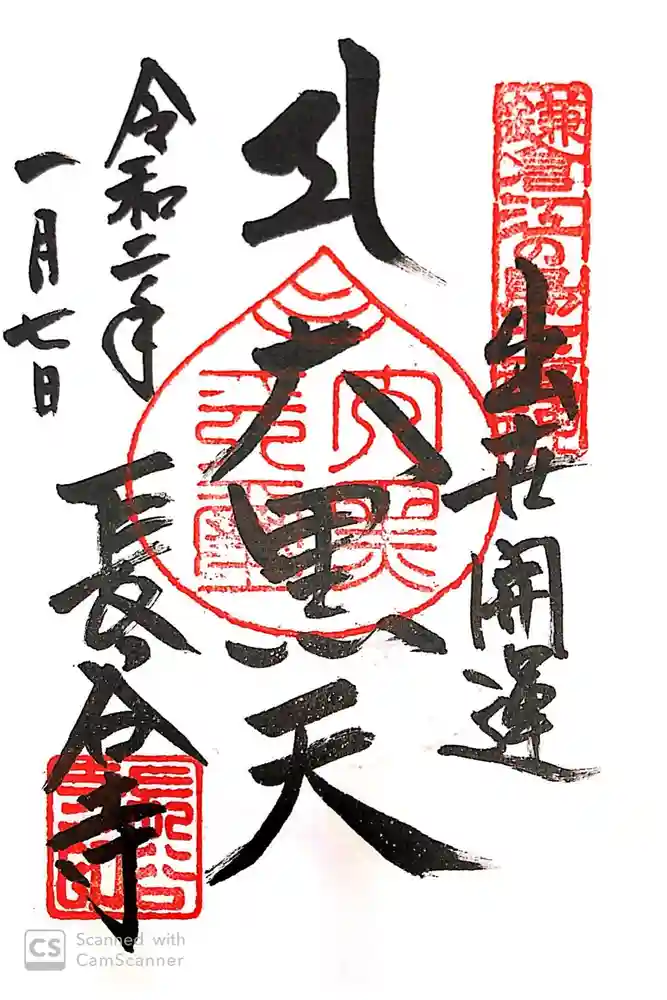 鎌倉江の島七福神
出世開運
大黒天
大黒天
令和二年
一月七日
長谷寺
CS
Scanned with
CamScanner